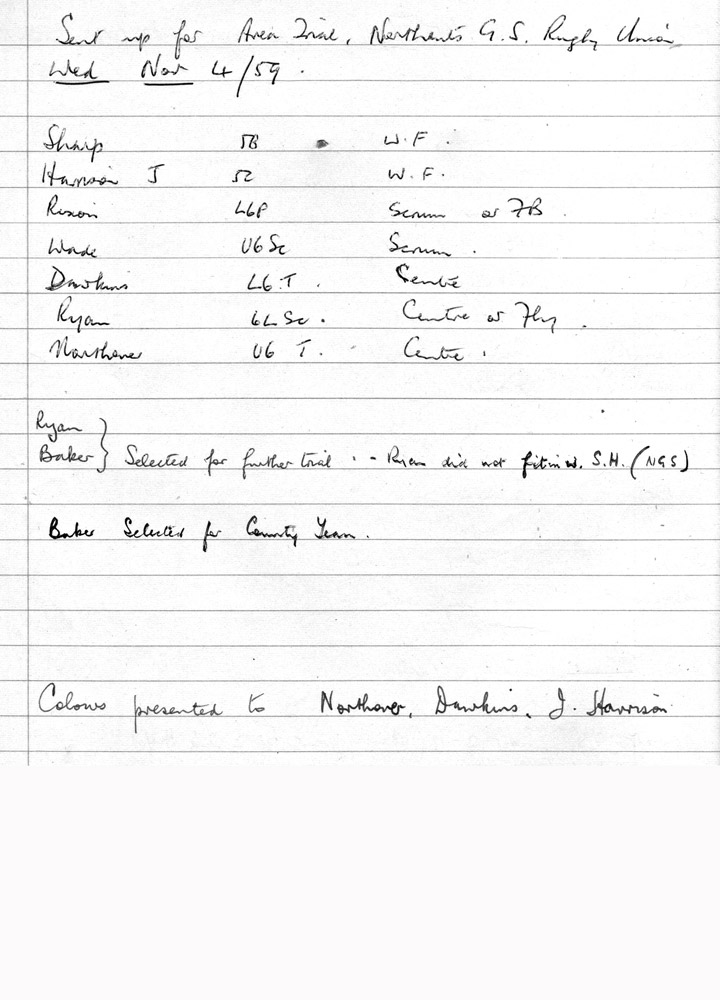 Sent up for Area Trial, Northants G.S. Rugby Union
Wed Nov 4/59.
Sharp 5B W.F.
Harrison J 52 W.F.
Rixon L6P Scrum or FB.
Wade U6Sc Scrum.
Dawkins L6.T. Centre
Ryan 6LSc. Centre or Fly.
Northover U6 T. Centre.
Ryan
Baker } Selected for further trial .. Ryan did not fit in w. S.H. (NGS)
Baker Selected for County Team.
Colours presented to Northover, Dawkins, J. Harrison